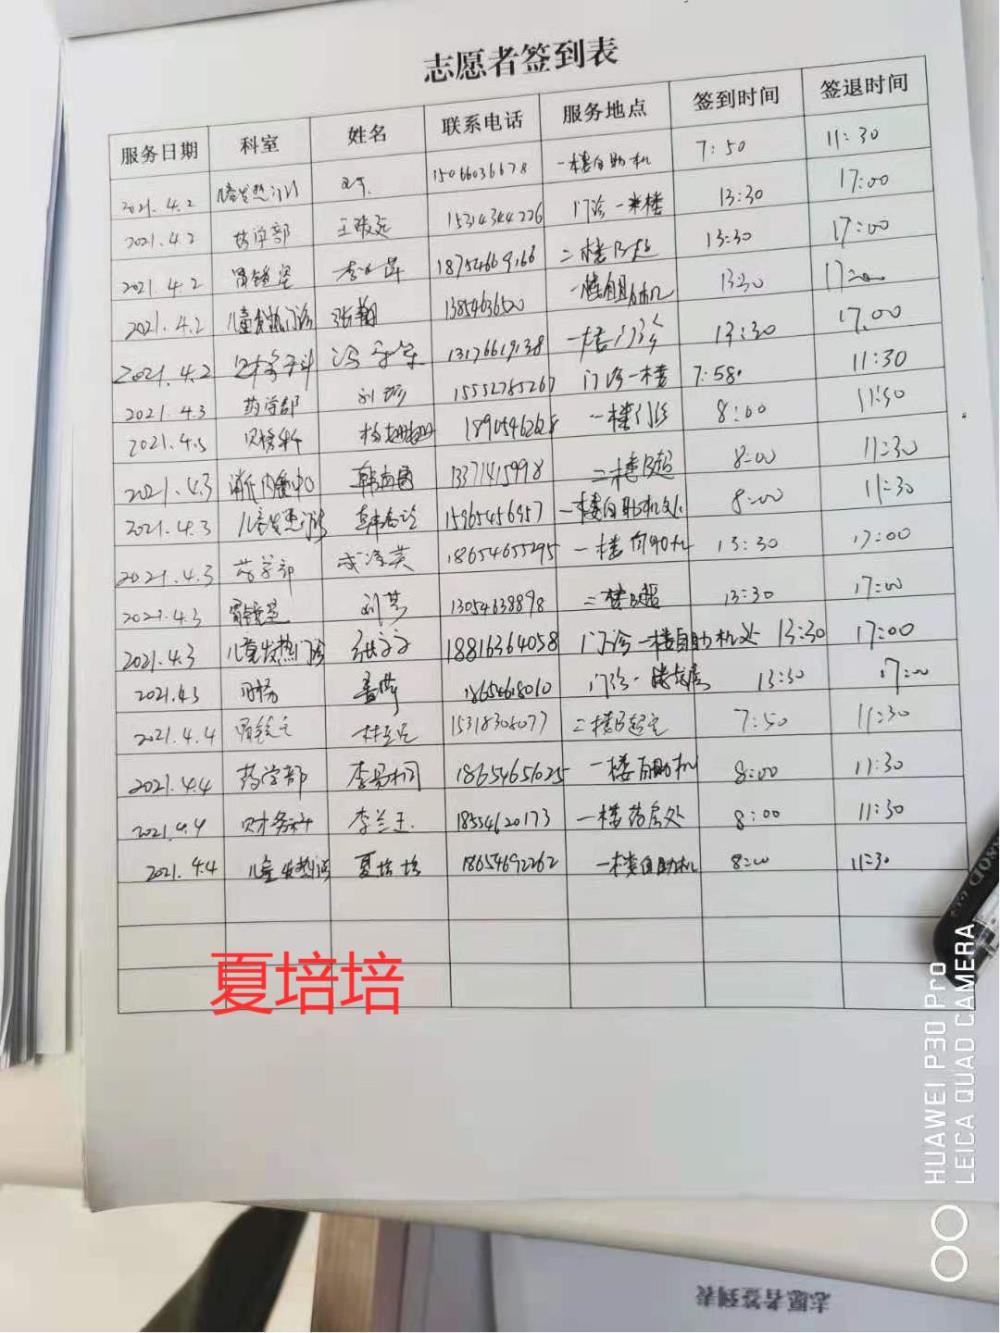 志愿者签到表
服务日期 科室 姓名 联系电话 服务地点 签到时间 签退时间
2021.4.2 儿童发热门诊 15066036678 一楼自助机 7:50 11:30
2021.4.2 药学部 15314344226 门诊一楼 13:30 17:00
2021.4.2 胃镜室 18754669166 二楼B超 13:30 17:00
2021.4.2 儿童发热门诊 张翔 1385463650 一楼自助机 1330 17:00
2021.4.2 13176619138 一楼门诊 13:30 17.00
2021.4.3 药学部 刘珍 15552785267 门诊一楼 7:58 11:30
2021.4.3 财务科 一楼门诊 8:00 11:30
2021.4.3 消化内镜中心 13371415998 二楼B超 8:00 11:30
2021.4.3 儿童发热门诊 15965456957 一楼自助机处 8:00 11:30
2021.4.3 药学部 成洪英 18654655295 一楼自助机 13:30 17:00
2021.4.3 胃镜室 刘芳 13054638898 二楼B超 13:30 17:00
2021.4.3 儿童发热门诊 张文文 18816364058 门诊一楼自助机处 13:30 17:00
2021.4.3 18654618010 门诊一楼药房 13:30 17:00
2021.4.4 胃镜室 15318308077 二楼B超室 7:50 11:30
2021.4.4 药学部 1865465625 一楼自助机 8:00 11:30
2021.4.4 财务科 李兰玉 18554620173 一楼药房处 8:00 11:30
2021.4.4 儿童发热门诊 夏培培 18654692262 一楼自助机 8:00 11:30
夏培培
HUAWEI P30 Pro
LEICA QUAD CAMERA
志愿者签到表